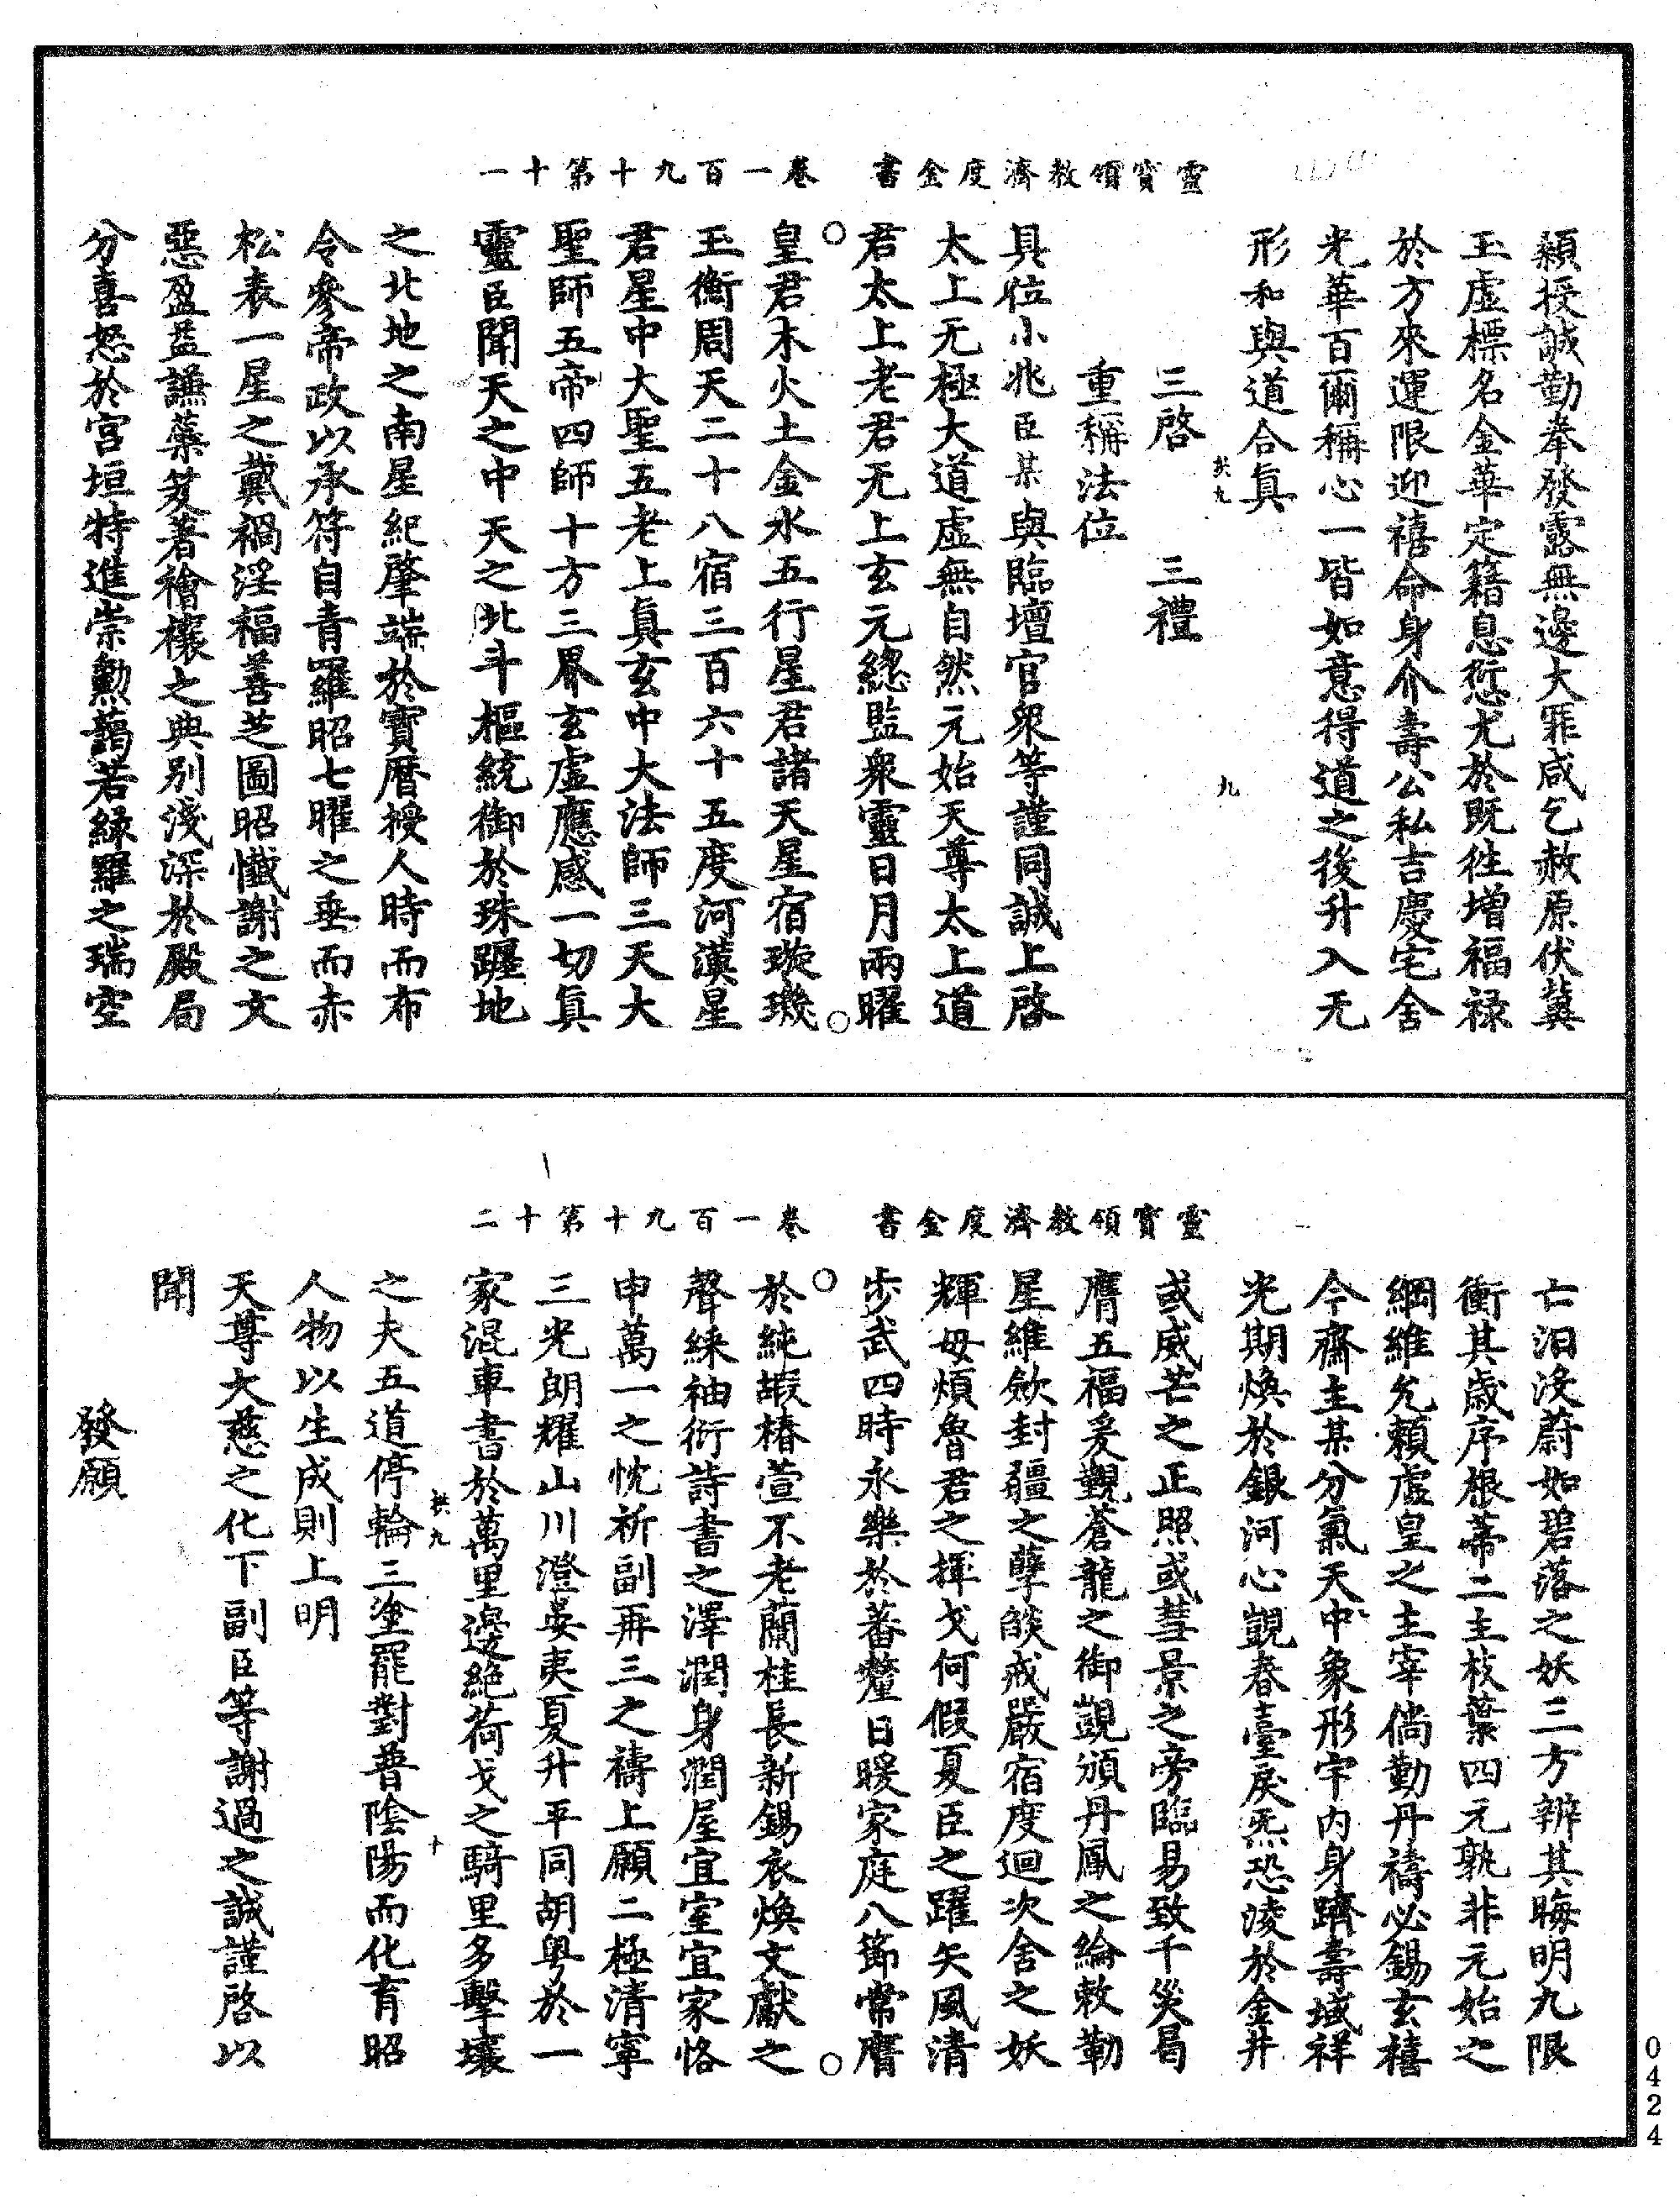 靈寶領教濟度金書　卷一百九十第十一
穎授誠勤奉發露無邊大罪咸乞赦原伏冀
玉虛標名金華定籍息愆尤於既徃增福禄
於方來運限迎禧命身介壽公私吉慶宅舍
光華百爾稱心一皆如意得道之後升入无
形和與道合眞
三啓　三禮
重稱法位
具位小兆臣某與臨壇官衆等謹同誠上啓
太上无極大道虛無自然元始天尊太上道
君太上老君无上玄元總監衆靈日月兩曜
皇君木火土金水五行星君諸天星宿璇璣
玉衡周天二十八宿三百六十五度河漢星
君星中大聖五老上眞玄中大法師三天大
聖師五帝四師十方三界玄虛應感一切眞
靈臣聞天之中天之北斗樞統御於珠躔地
之北地之南星紀肇端於寶曆授人時而布
令參帝政以承符自青羅昭七曜之垂而赤
松表一星之戴禍淫福善芝圖昭懺謝之文
惡盈益謙蘂笈著襘禳之典别淺深於殿局
分喜怒於宮垣特進崇勳藹若緑羅之瑞空
珙九
九
靈寶領教濟度金書　卷一百九十第十二
亡汨没蔚如碧落之妖三方辨其晦明九限
衝其歲序根蒂二主枝葉四元孰非元始之
綱維允賴虛皇之主宰倘勤丹禱必錫玄禧
今齋主某分氣天中象形宇内身躋壽域祥
光期煥於銀河心覬春臺戾炁恐淩於金井
或威芒之正照或彗景之旁臨易致千災曷
膺五福爰觀蒼龍之御覬頒丹鳳之綸敕勒
星維欽封疆之孽燄戒嚴宿度迴次舍之妖
輝毋煩魯君之揮戈何假夏臣之躍矢風清
步武四時永樂於蕃釐日暖家庭八節常膺
於純嘏椿萱不老蘭桂長新錫衣煥文獻之
聲綵袖衍詩書之澤潤身潤屋宜室宜家恪
申萬一之忱祈副再三之禱上願二極清寧
三光朗耀山川澄晏夷夏升平同胡粤於一
家混車書於萬里邊絶荷戈之騎里多擊壤
之夫五道停輪三塗罷對普陰陽而化育昭
人物以生成則上明
天尊大慈之化下副臣等謝過之誠謹啓以
聞
發願
珙九
十
0424